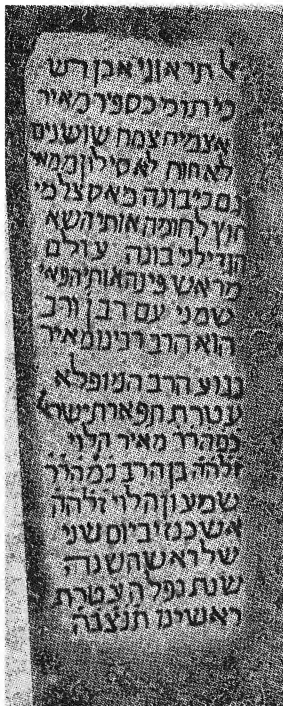 אל תראוני אבן רש
כי תומי כספיר מאיר
אצמיח צמח שושנים
גם כי בונה מאס צלמי
חוץ לחומה אותי השא
הגדיל כי בונה עולם
מראש פינה אותי הפאי
שמני עם רבן ורב
הוא הרב רבינו מאיר
הרב המופלא
עטרת תפארת ישר
כמהרר מאיר הלוי
זלהה בן הרב כמהרר
שמעון הלוי זלהה
אשכנזי ביום שני
של ראש השנה
שנת נפלה עטרת
ראשינו תנצבה